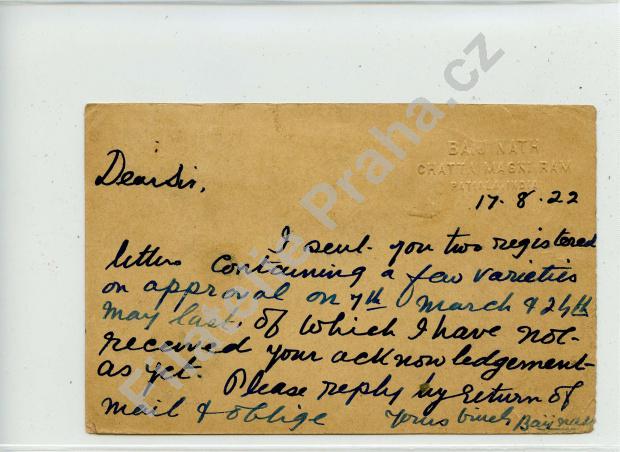 BAIJ NATH
CHATTA MAGNI RAM
PATIALA, INDIA
17.8.22
Dear Sir,
I sent you two registered
letters containing a few varieties
on approval on 7th March & 24th
May last, of which I have not
received your acknowledgement
as yet. Please reply by return of
mail & oblige Yours
Baij Nath
Filatelie Praha.cz